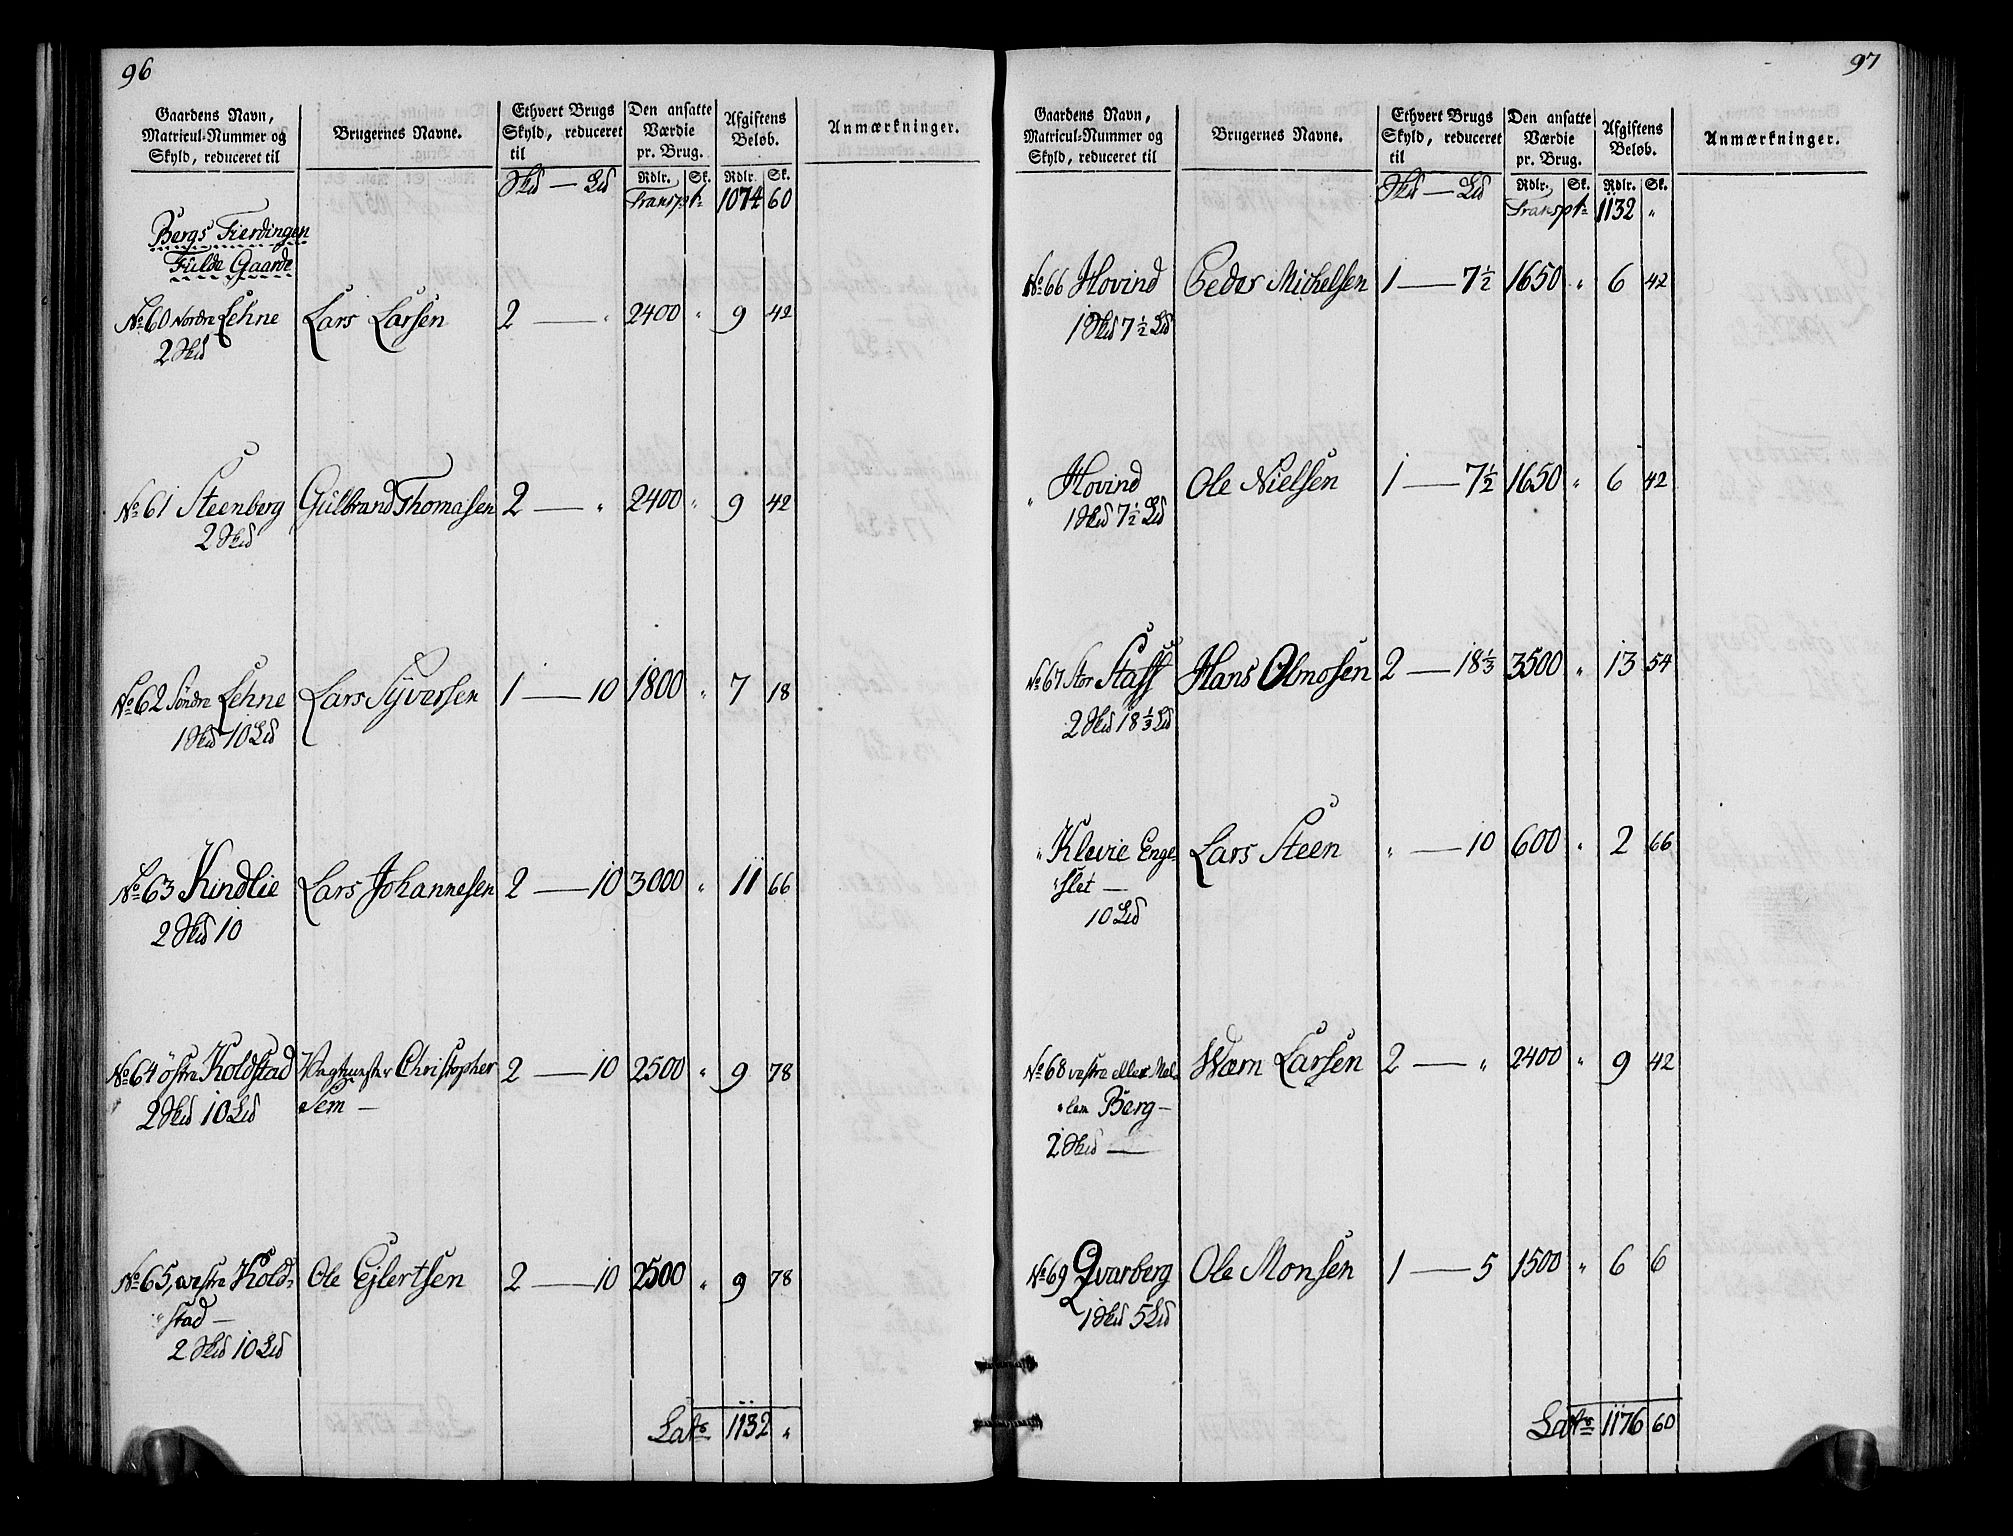 96
Gaardens Navn, Matricul-Nummer og Skyld, reduceret til
Brugernes Navne.
Ethvert Brugs Skyld, reduceret til
Den ansatte Værdie pr. Brug.
Afgiftens Beløb.
Anmærkninger.
Rdlr. Sk. Rdlr. Sk.
Transpt 1074 60
Bergs Fierdingen
Fulde Gaarde
No 60 Nordre Lehne Lars Larsen 2 — " 2400 " 9 42
2 Skd
No 61 Steenberg Gulbrand Thomasen 2 — " 2400 " 9 42
2 Skd
No 62 Søndre Lehne Lars Syversen 1 — 10 1800 " 7 18
1 Skd 10 Ld
No 63 Kindlie Lars Johannesen 2 — 10 3000 " 11 66
2 Skd 10
No 64 östre Koldstad Christopher 2 — 10 2500 " 9 78
2 Skd 10 Ld Sem —
No 65, westre Kold- Ole Ejlertsen 2 — 10 2500 " 9 78
stad —
2 Skd 10 Ld
Lats 1132 "
97
Gaardens Navn, Matricul-Nummer og Skyld, reduceret til
Brugernes Navne.
Ethvert Brugs Skyld, reduceret til
Den ansatte Værdie pr. Brug.
Afgiftens Beløb.
Anmærkninger.
Skd — Ld
Rdlr. Sk. Rdlr. Sk.
Transpt 1132 "
No 66 Hovind Peder Michelsen 1 — 7½ 1650 " 6 42
1 Skd 7½ Ld
" Hovind Ole Nielsen 1 — 7½ 1650 " 6 42
1 Skd 7½ Ld
No 67 Stor Staff Hans Olmosen 2 — 18⅓ 3500 " 13 54
2 Skd 18⅓ Ld
" Klevie Enge- Lars Steen " — 10 600 " 2 66
slet —
10 Ld
No 68 vestre eller Mel- Wærn Larsen 2 — " 2400 " 9 42
lem Berg —
2 Skd —
No 69 Qvarberg Ole Monsen 1 — 5 1500 " 6 6
1 Skd 5 Ld
Lats 1176 60